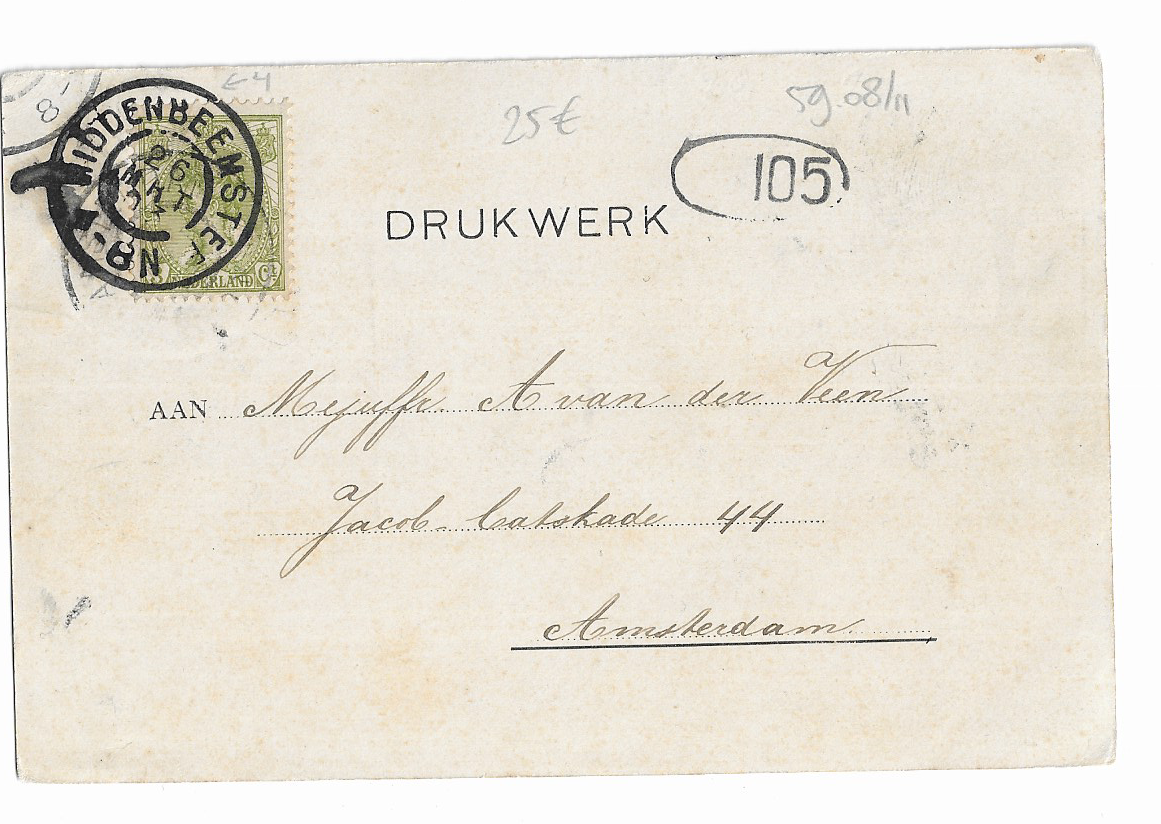 8
€4
25€
59.08/11
MIDDENBEEMSTER
26
MRT
N.B
NEDERLAND Ct
105
DRUKWERK
AAN Mejuffr. A van der Veen
Jacob-Catskade 44
Amsterdam.